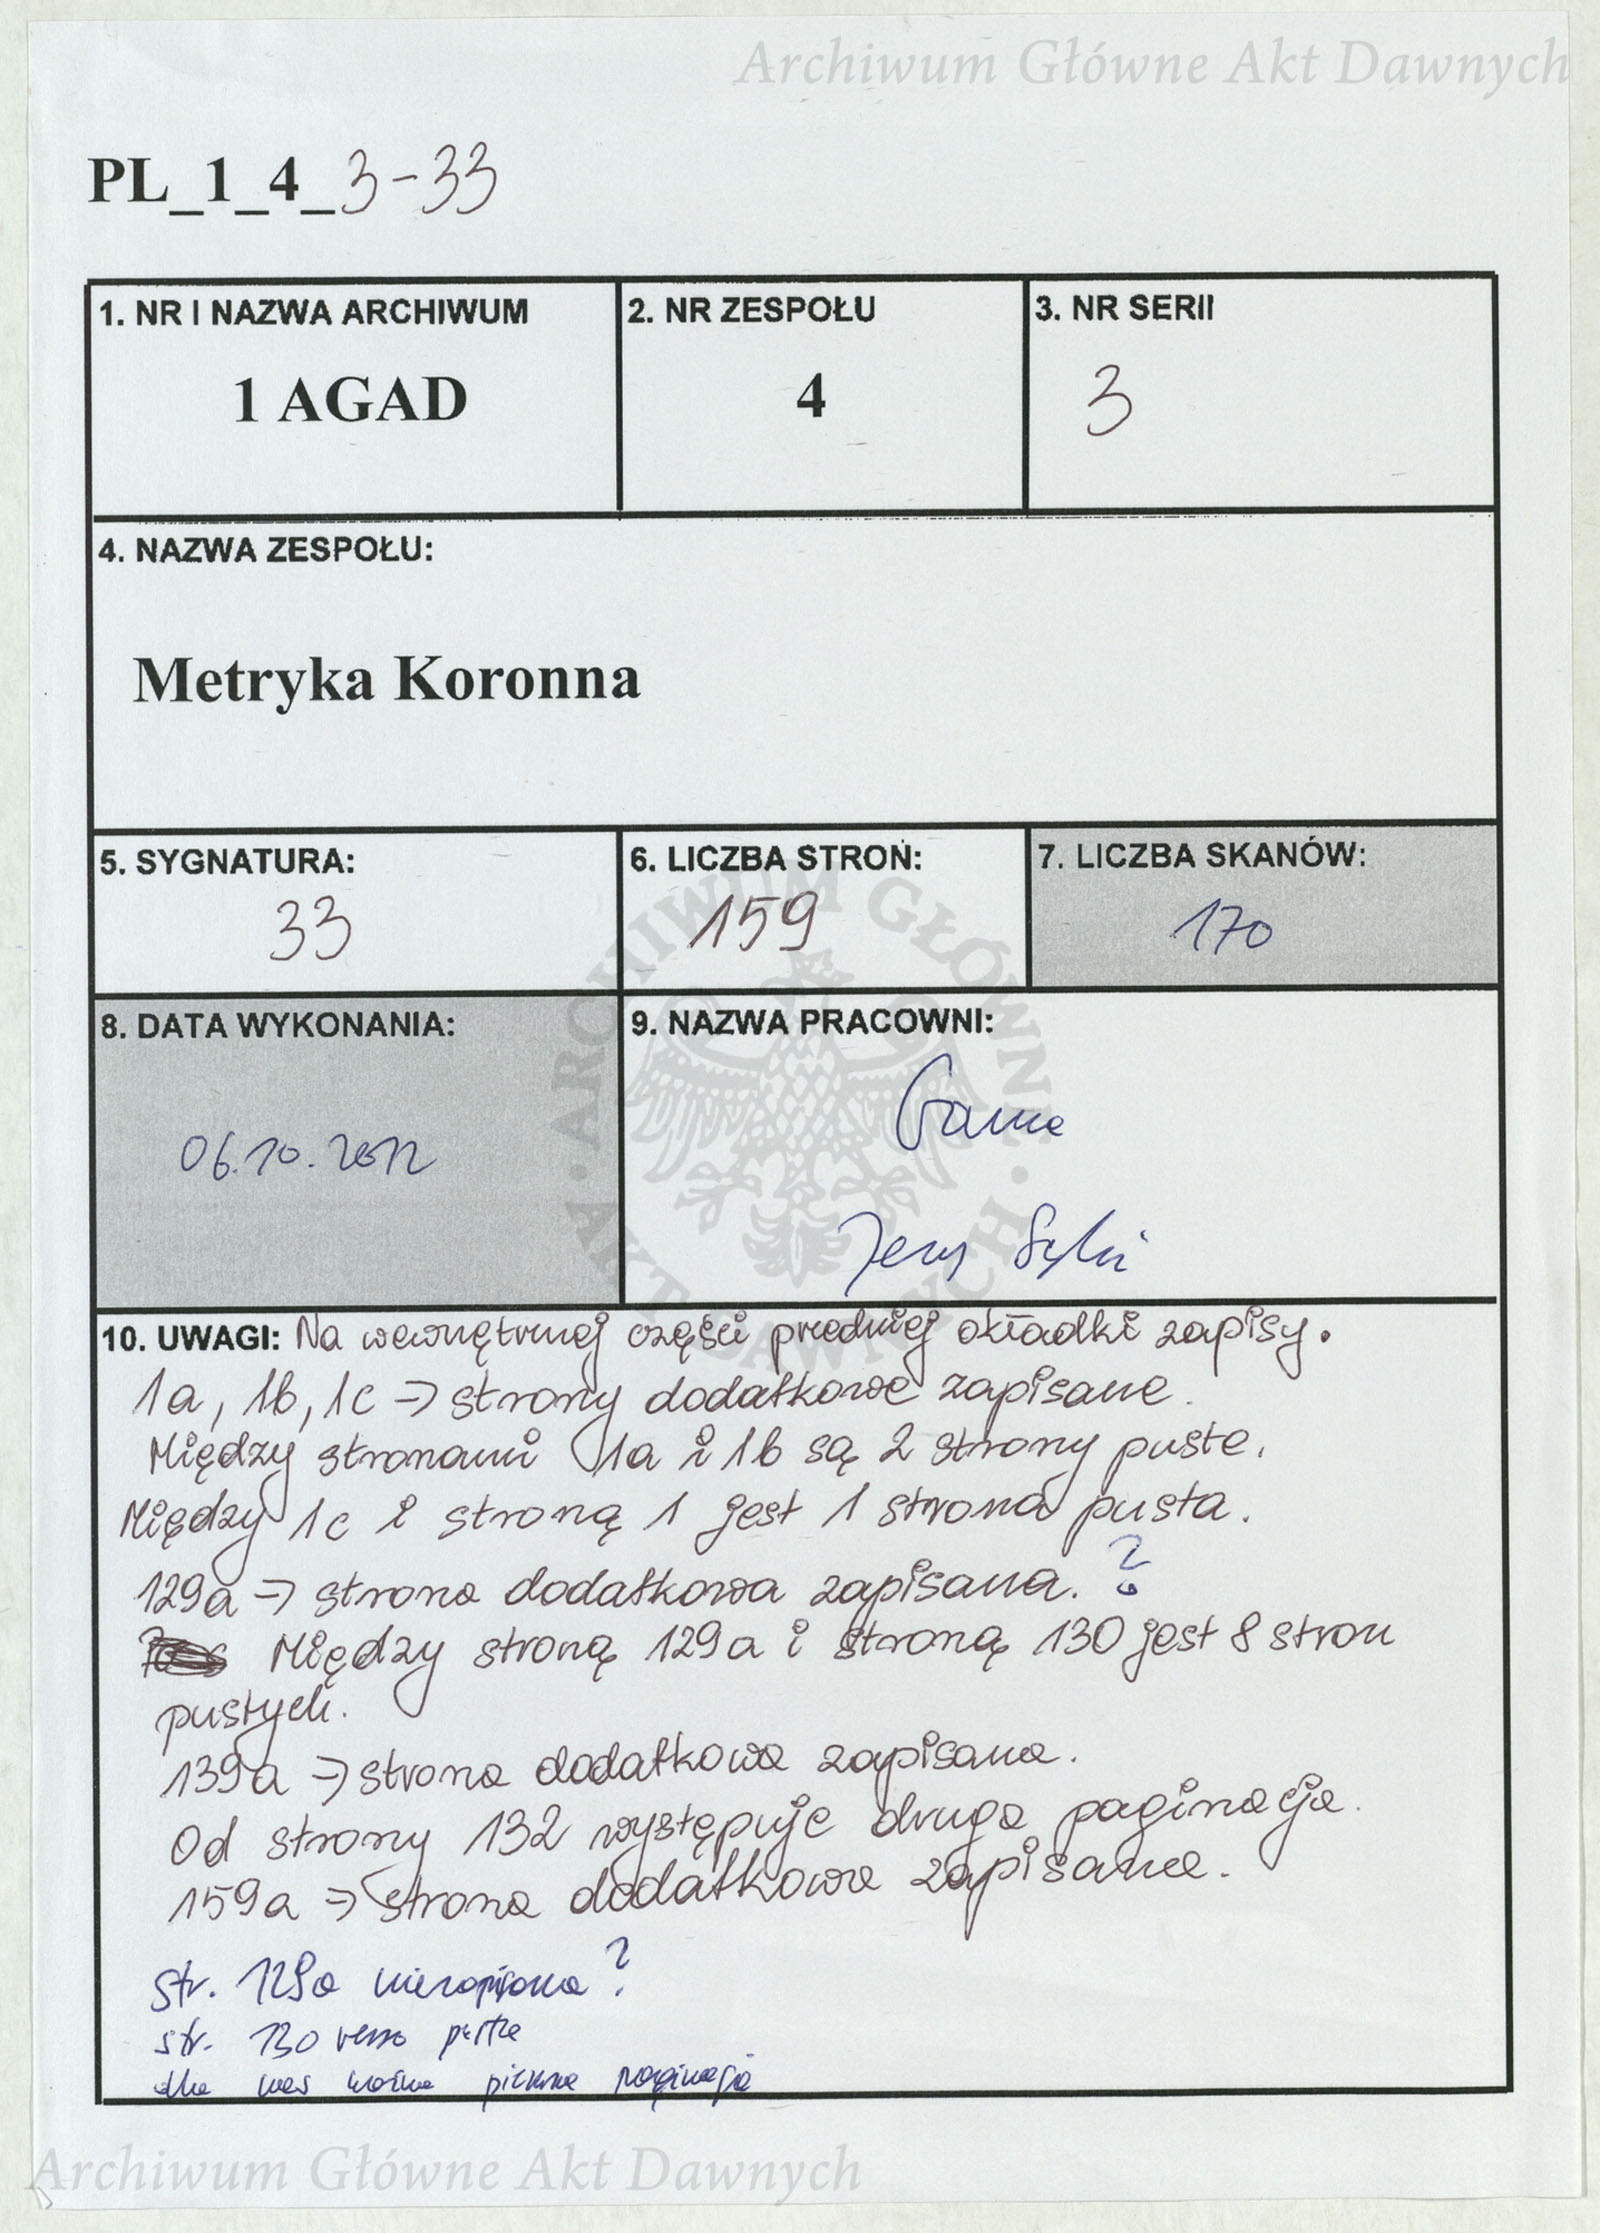 Archiwum Główne Akt Dawnych
PL_1_4_3-33
1. NR I NAZWA ARCHIWUM
1 AGAD
2. NR ZESPOŁU
4
3. NR SERII
3
4. NAZWA ZESPOŁU:
Metryka Koronna
5. SYGNATURA:
33
6. LICZBA STRON:
159
7. LICZBA SKANÓW:
170
8. DATA WYKONANIA:
06.10.2012
9. NAZWA PRACOWNI:
Jerzy
ARCHIWUM GŁÓWNE · AKT DAWNYCH ·
10. UWAGI: Na wewnętrznej części przedniej okładki zapisy.
1a, 1b, 1c → strony dodatkowe zapisane.
Między stronami 1a i 1b są 2 strony puste.
Między 1c i stroną 1 jest 1 strona pusta.
129a → strona dodatkowa zapisana. ?
Między stroną 129a i stroną 130 jest 8 stron
pustych.
139a → strona dodatkowa zapisana.
Od strony 132 występuje druga paginacja.
159a → strona dodatkowa zapisana.
str. 129a niezapisana ?
str. 130 verso puste
dla nas ważna paginacja
Archiwum Główne Akt Dawnych